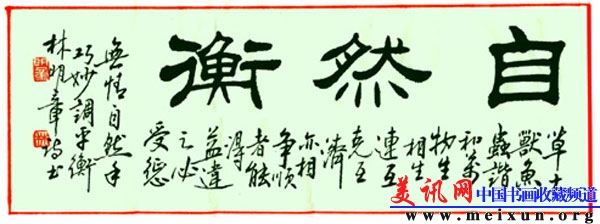 自然衡
草木
獸魚
蟲諧
和萬
物生
相生
連互
克互
濟
亦相
争順
者能
得
益違
之必
受惩
無情自然手
巧妙調平衡
林明章诗书
美讯网 中国书画收藏频道
www.meixun.org